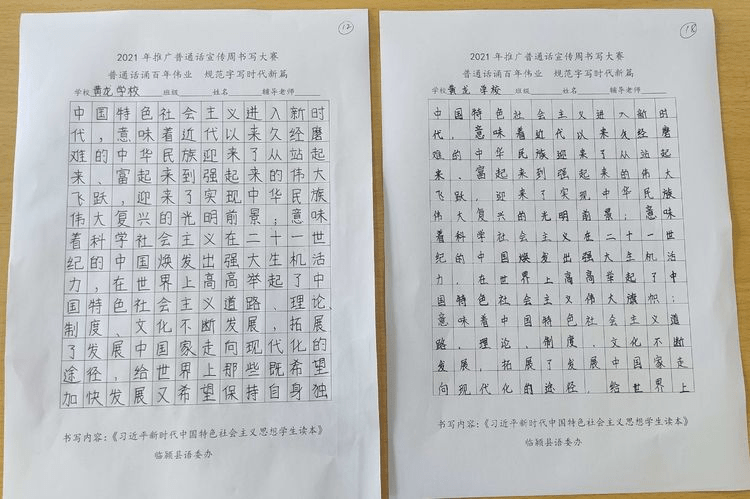 12
2021 年推广普通话宣传周书写大赛
普通话诵百年伟业 规范字写时代新篇
学校 黄龙学校 班级 姓名 辅导老师
中国特色社会主义进入新时
代，意味着近代以来久经磨
难的中华民族迎来了从站起
来、富起来到强起来的伟大
飞跃，迎来了实现中华民族
伟大复兴的光明前景；意味
着科学社会主义在二十一世
纪的中国焕发出强大生机活
力，在世界上高高举起了中
国特色社会主义道路、理论、
制度、文化不断发展，拓展
了发展中国家走向现代化的
途径，给世界上那些既希望
加快发展又希望保持自身独
书写内容：《习近平新时代中国特色社会主义思想学生读本》
临颍县语委办
18
2021 年推广普通话宣传周书写大赛
普通话诵百年伟业 规范字写时代新篇
学校 黄龙 学校 班级 姓名 辅导老师
中国特色社会主义进入新时
代，意味着近代以来久经磨
难的中华民族迎来了从站起
来、富起来到强起来的伟大
飞跃，迎来了实现中华民族
伟大复兴的光明前景；意味
着科学社会主义在二十一世
纪的中国焕发出强大生机活
力，在世界上高高举起了中
国特色社会主义伟大旗帜；
意味着中国特色社会主义道
路、理论、制度、文化不断
发展，拓展了发展中国家走
向现代化的途径，给世界上
书写内容：《习近平新时代中国特色社会主义思想学生读本》
临颍县语委办